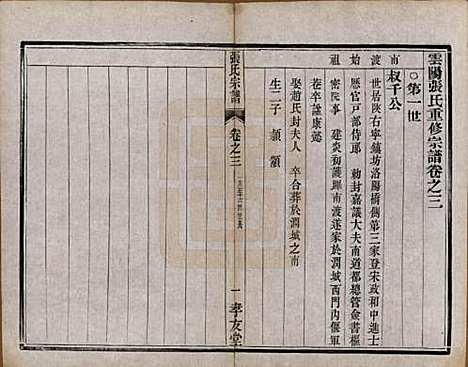 雲陽張氏重修宗譜卷之三
○第一世
叔千公
南渡始祖
世居陜右寧鎮坊洛陽橋側第三家登宋政和中進士
懸官戸部侍郎　勅封嘉議大夫南道都總管僉書樞
密院事　建炎初護蹕南渡遂家於潤城西門內偃軍
巷卒諡康懿
娶趙氏封夫人　卒合葬於潤城之南
生二子　顗　額
張氏宗譜
卷之三
一
孝友堂